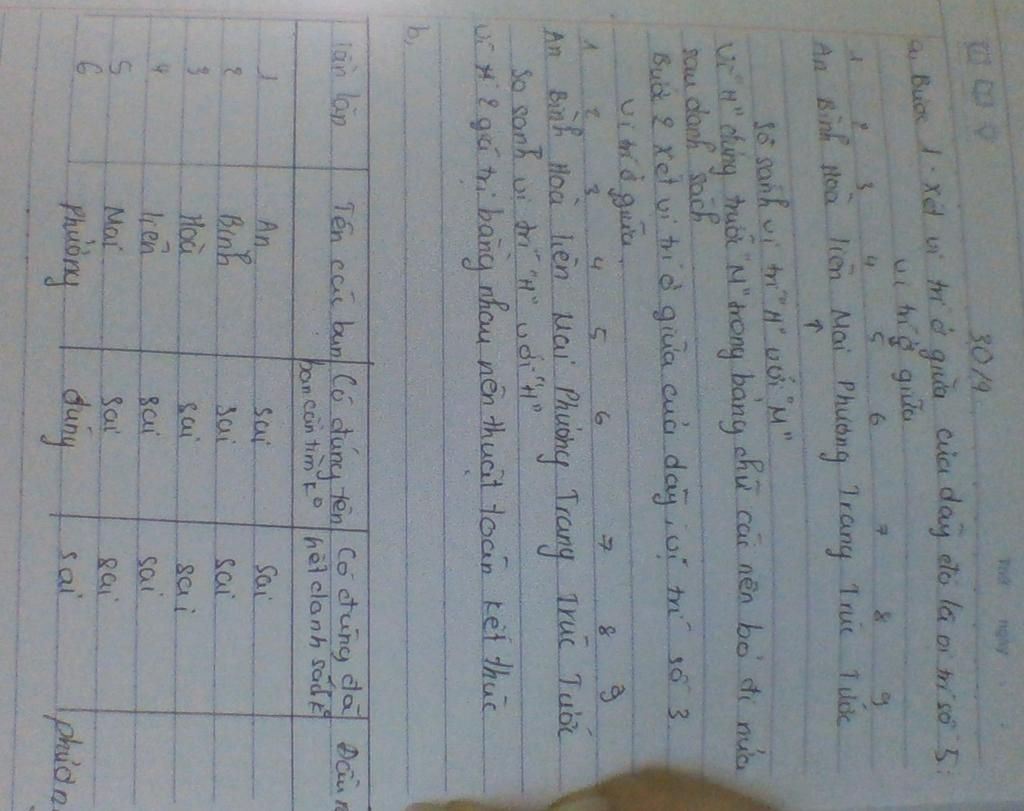 30/9
Thứ Ngày
a, Bước 1: xét vị trí ở giữa của dãy đó là vị trí số 5:
vị trí ở giữa
1 2 3 4 5 6 7 8 9
An Bình Hoà liên Mai Phương Trang Trúc Tước
↑
so sánh vị trí "H" với "M"
Vì "H" đứng trước "M" trong bảng chữ cái nên bỏ đi nửa
sau danh sách
Bước 2 xét vị trí ở giữa của dãy, vị trí số 3
vị trí ở giữa
1 2 3 4 5 6 7 8 9
An Bình Hoà liên Mai Phương Trang Trúc Tước
So sánh vị trí "H" với "H"
vì H 2 giá trị bằng nhau nên thuật toán kết thúc
b,
lần lặp Tên các bạn Có đúng tên bạn cần tìm k° Có đúng đã hết danh sách k°
1 An sai sai
2 Bình sai sai
3 Hoà sai sai
4 liên sai sai
5 Mai sai sai
6 Phương đúng sai